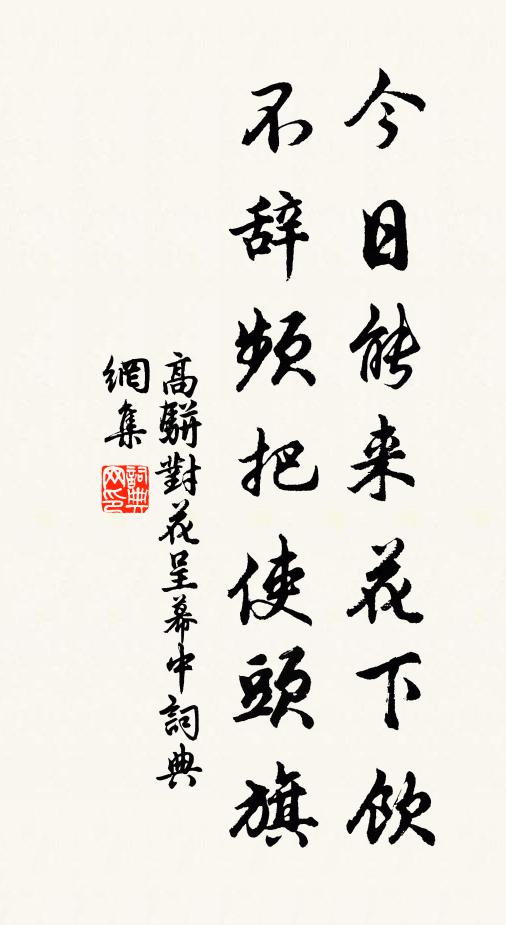 今日能来花下飲
不辞頻把使頭旗
高駢對花呈幕中詞典
網集
詞典网印